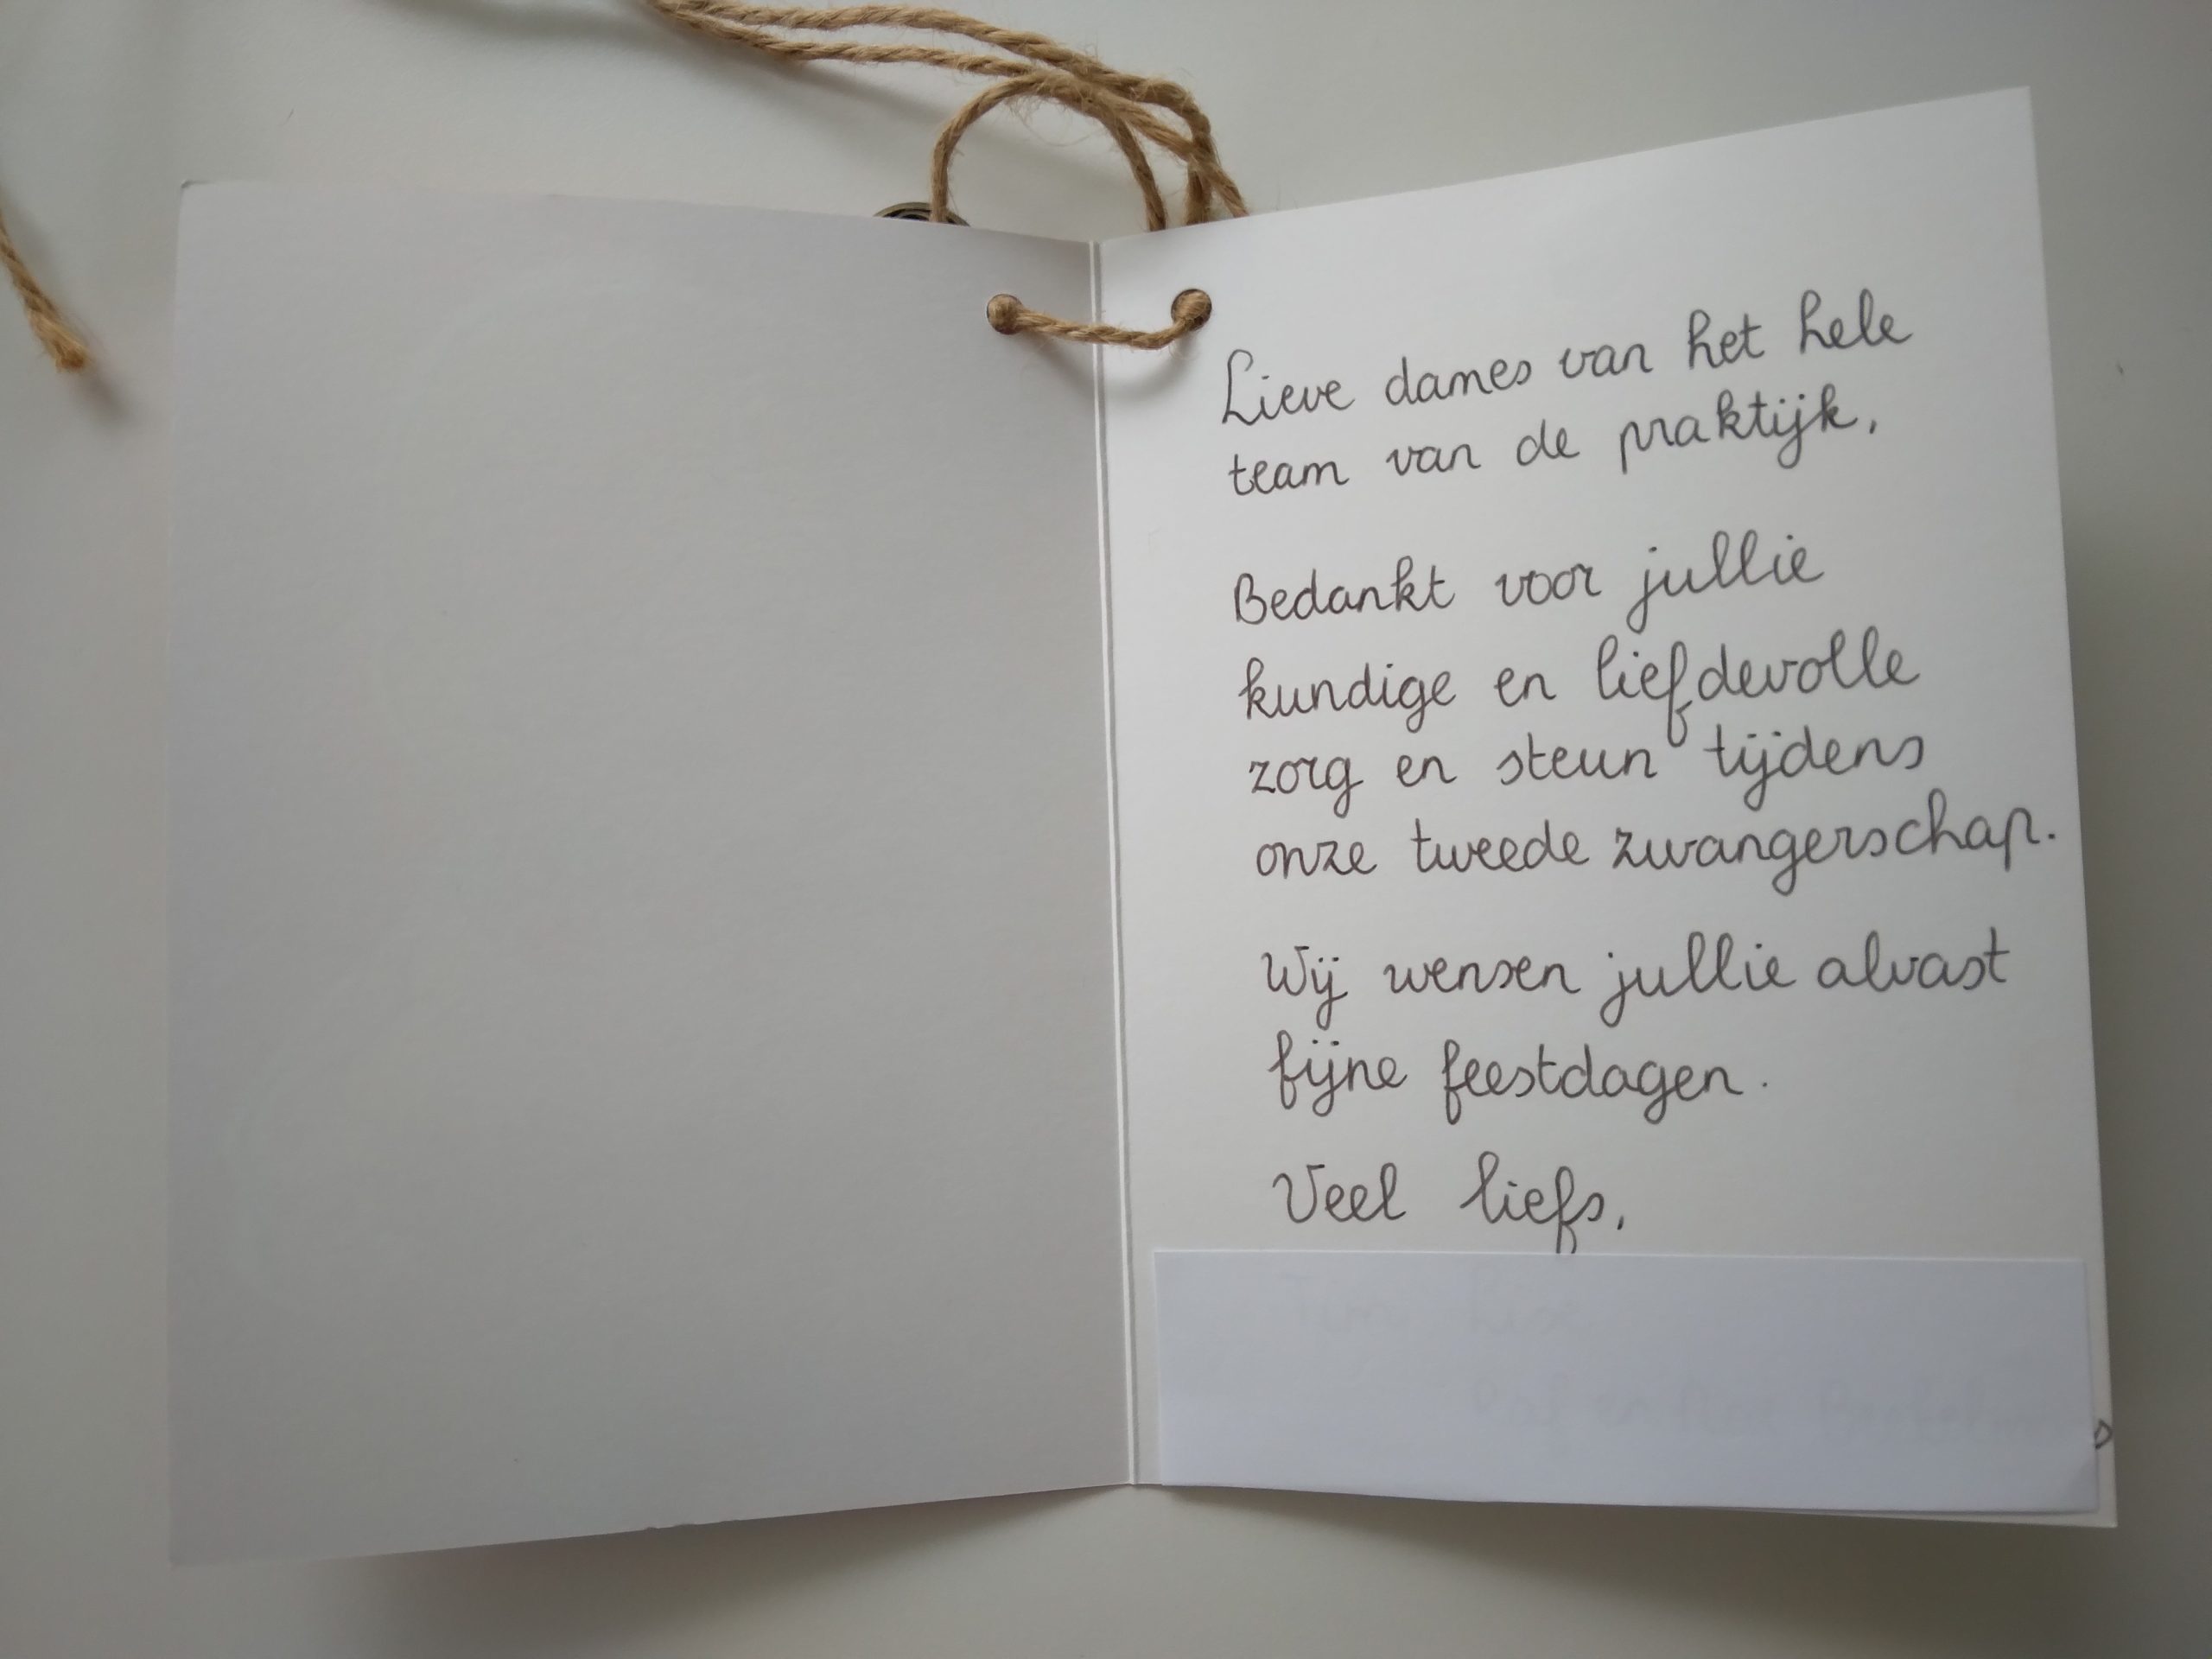 Lieve dames van het hele
team van de praktijk,
Bedankt voor jullie
kundige en liefdevolle
zorg en steun tijdens
onze tweede zwangerschap.
Wij wensen jullie alvast
fijne feestdagen.
Veel liefs,